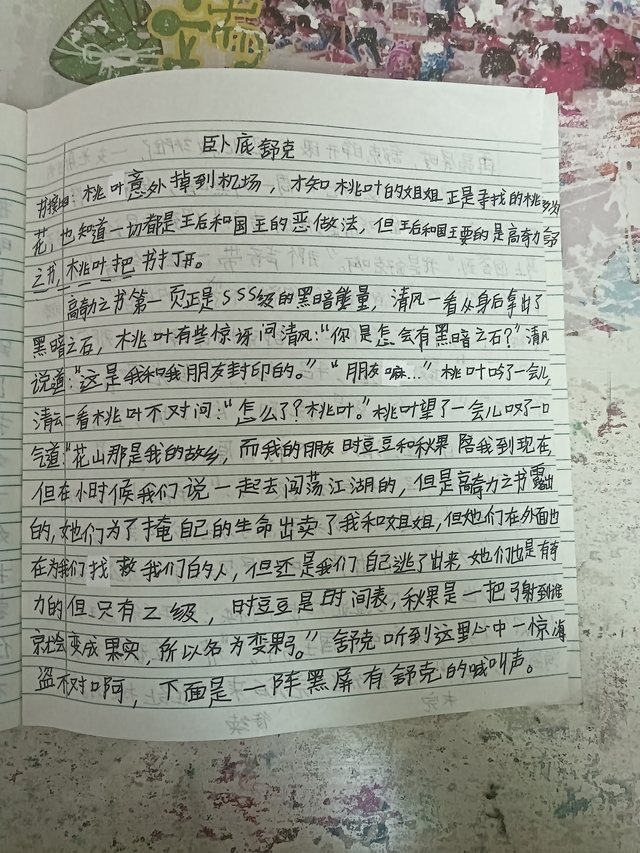 卧底舒克
书接上回：桃叶意外掉到机场，才知桃叶的姐姐正是寻找的桃
花，也知道一切都是王后和国王的恶做法，但王后和国王要的是高奇力
之书，桃叶把书打开。
高奇力之书第一页正是SSS级的黑暗能量，清风一看从身后拿出了
黑暗之石，桃叶有些惊讶问清风：“你是怎会有黑暗之石？”清风
说道：“这是我和我朋友封印的。”“朋友嘛…”桃叶吟了一会儿，
清云一看桃叶不对问：“怎么了？桃叶。”桃叶望了一会儿叹了一口
气道“花山那是我的故乡，而我的朋友时豆豆和秋果陪我到现在，
但在小时候我们说一起去闯荡江湖的，但是高奇力之书露出
的，她们为了掩自己的生命出卖了我和姐姐，但她们在外面也
在为我们找救我们的人，但还是我们自己逃了出来，她们也是有奇
力的但只有乙级，时豆豆是时间表，秋果是一把弓射到谁
就会变成果实，所以名为变果弓。”舒克听到这里心中一惊海
盗不对啊，下面是一阵黑屏有舒克的喊叫声。